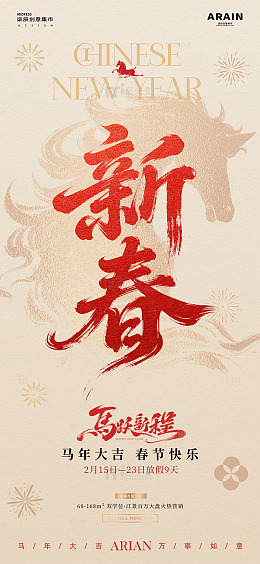 柒辰创意集市
DESIGN
ARAIN
CHINESE
NEW YEAR
新
春
马跃新程
马年大吉 春节快乐
2月15日—23日放假9天
68-168m² 双学位·江景百万大盘火热营销
马/年/大/吉 ARIAN 万/事/如/意